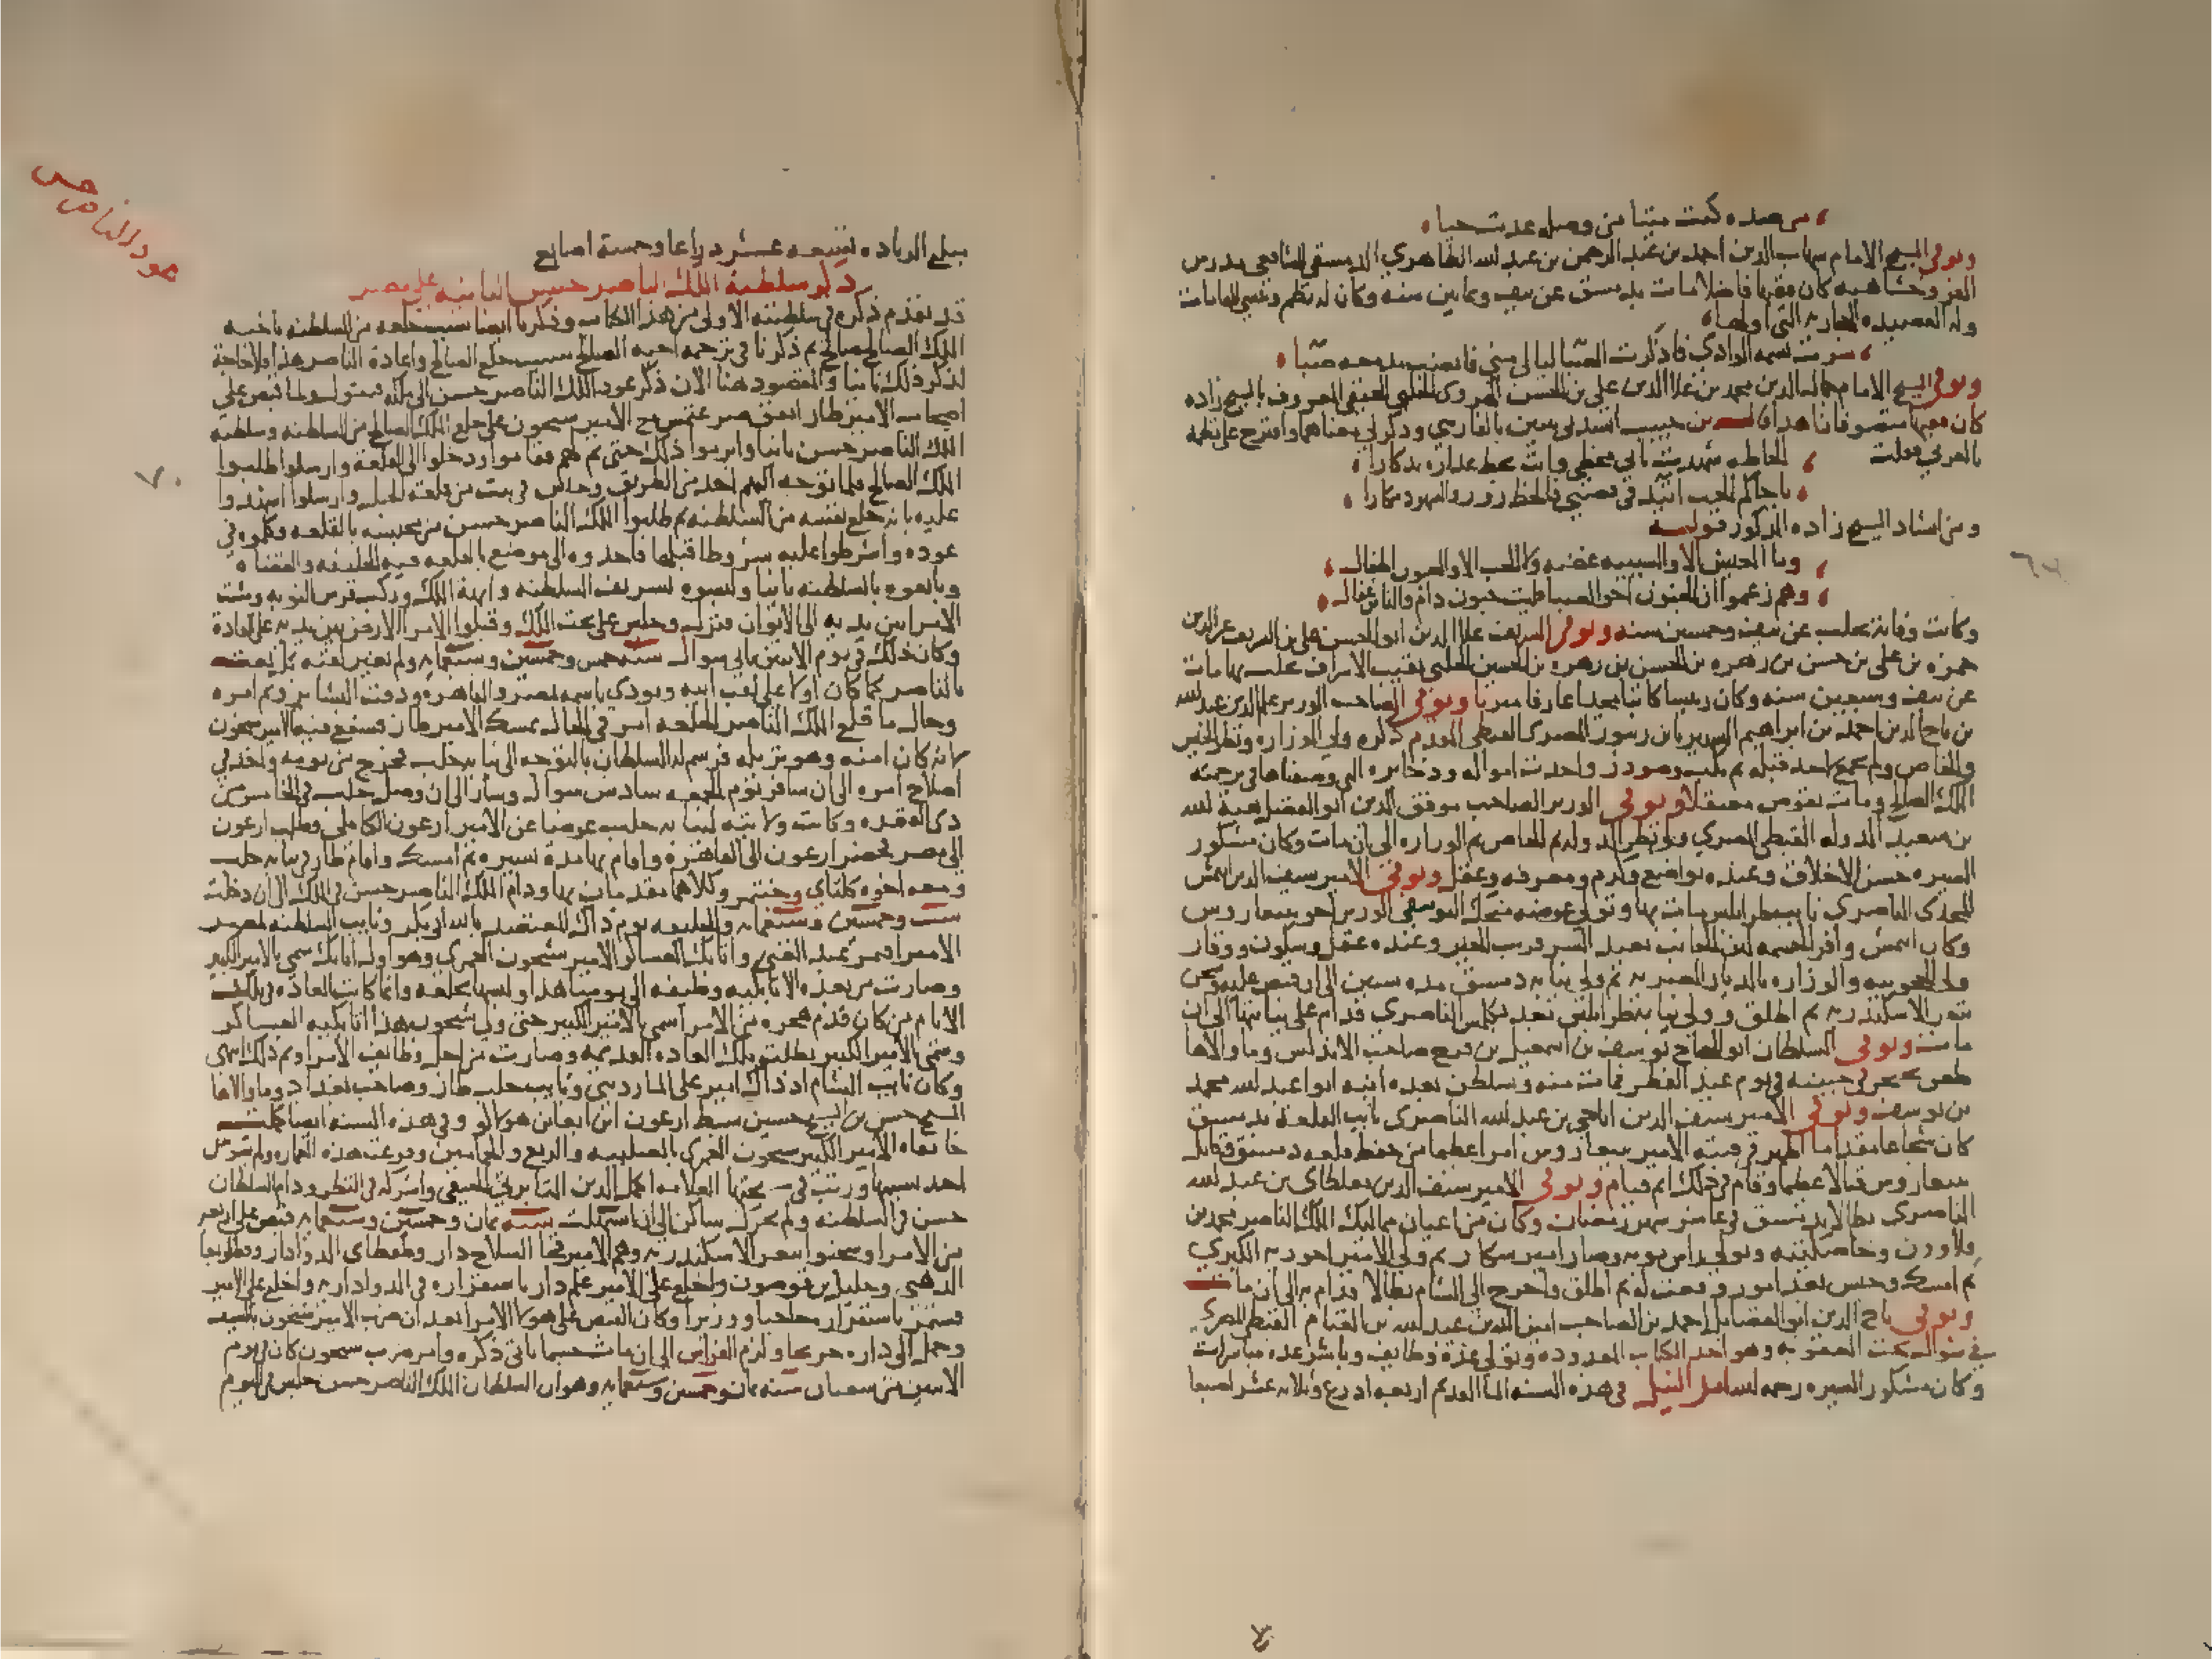 من صده كنت ميتا من وصله عدت حيا
وتوفي الشيخ الامام شهاب الدين احمد بن عبد الرحمن بن عبد الله الظاهري الدمشقي الشافعي بدمشق
كان فقيها فاضلا مات بدمشق عن نيف وثمانين سنه وكان له نظم
وله القصيده التي اولها
سرت نسمه الوادي فاذكرت الصبا ليالي منى
وتوفي الشيخ الامام جمال الدين محمد بن علا الدين علي بن الحسن الهروي الحلبي الحنفي المعروف بالشيخ زاده
كان فقيها متصوفا زاهدا قال بن حبيب انشدني بيتين بالفارسي وذكر لي معناهما واقترح علي نظمه
بالعربي فقلت
الحاظه شهدت باني مخطي واتت بخط عذاره تذكارا
يا حاكم الحب اتئد في قصتي فالخط زور والشهود سكارا
ومن انشاد الشيخ زاده المذكور قوله
وما العيش الا والشبيبه غضه ولا الحب الا والمحبون اطفال
وهم زعموا ان الجنون اخو الصبا فليت جنون دام والناس غفال
وكانت وفاته بحلب عن نيف وخمسين سنه وتوفي الشريف علا الدين ابو الحسن علي بن الشريف عز الدين
حمزه بن علي بن حسن بن زهره بن الحسن بن زهره بن الحسين الحلبي نقيب الاشراف بحلب بها مات
عن نيف وسبعين سنه وكان رئيسا كاتبا مجيدا عارفا وتوفي الصاحب الوزير علم الدين عبد الله
بن تاج الدين احمد بن ابراهيم الشهير بابن زنبور المصري القبطي المقدم ذكره ولي الوزاره ونظر الجيش
والخاص ولم تجمع لاحد قبله ثم نكب وصودر واخذت امواله وذخايره التي وصفناها في ترجمته
الملك الصالح ومات بقوص معتقلا وتوفي الوزير الصاحب موفق الدين ابو الفضل هبة الله
بن سعيد الدوله القبطي المصري ولي نظر الدوله ثم الخاص ثم الوزاره الى ان مات وكان مشكور
السيره حسن الاخلاق وعنده تواضع وكرم ومعرفه وعقل وتوفي الامير سيف الدين ايتمش
المحمدي الناصري نايب طرابلس مات بها وتولي عوضه منجك اليوسفي الوزير اخو بيبغا روس
وكان ايتمش وافر الحشمه لين الجانب بعيد الشر قريب الخير وعنده عقل وسكون ووقار
ولي الحجوبيه والوزاره بالديار المصريه ثم ولي نيابة دمشق مده سنين الى ان قبض عليه وسجن
بثغر الاسكندريه ثم اطلق وولي نيابة طرابلس بعد بكلمش الناصري فدام على نيابتها الى ان
مات وتوفي السلطان ابو الحجاج يوسف بن اسمعيل بن فرج صاحب الاندلس وما والاها
طعن بخنجر في جبينه في يوم عيد الفطر فمات منه وتسلطن بعده ابنه ابو عبد الله محمد
بن يوسف وتوفي الامير سيف الدين اياجي بن عبد الله الناصري نايب القلعه بدمشق
كان شجاعا مقداما اظهر في فتنة الامير بيبغا روس امرا عظيما من حفظ قلعه دمشق وقاتل
بيبغا روس قتالا عظيما وقام في ذلك اتم قيام وتوفي الامير سيف الدين مغلطاي بن عبد الله
الناصري بطالا بدمشق في عاشر شهر رمضان وكان من اعيان مماليك الملك الناصر محمد بن
قلاوون وخاصكيته وتولى راس نوبه وصار امير شكار ثم ولي الامير اخوريه الكبري
ثم امسك وحبس بعد امور وقعت له ثم اطلق واخرج الى الشام بطالا فدام به الى ان مات
وتوفي تاج الدين ابو الفضايل احمد بن الصاحب امين الدين عبد الله بن الغنام القبطي المصري
في شوال تحت العقوبه وهو احد الكتاب المعدوده وتولى عدة وظايف وباشر عده مباشرات
وكان مشكور السيره رحمه الله امر النيل في هذه السنه الما القديم اربعه اذرع وثلاثه عشر اصبعا
مبلغ الزياده سبعه عشر ذراعا وخمسة اصابع
ذكر سلطنة الملك الناصر حسن الثانيه على مصر
عود الناصر حسن
قد تقدم ذكره في سلطنته الاولى من هذا الكتاب وذكرنا ايضا سبب خلعه من السلطنه باخيه
الملك الصالح صالح ثم ذكرنا في ترجمه اخيه الصالح سبب خلع الصالح واعادة الناصر هذا فلا حاجة
لذكر ذلك ثانيا والمقصود هنا الان ذكر عود الملك الناصر حسن الى ملكه فنقول لما قبض على
اصحاب الامير طاز اتفق صرغتمش مع الامير شيخون على خلع الملك الصالح من السلطنه وسلطنة
الملك الناصر حسن ثانيا وابرموا ذلك حتى تم لهم فقاموا ودخلوا الى القلعة وارسلوا طلبوا
الملك الصالح فلما توجه اليهم اخذ من الطريق وحبس في بيت من قلعة الجبل وارسلوا اشهدوا
عليه بانه خلع نفسه من السلطنه ثم طلبوا الملك الناصر حسن من محبسه بالقلعه وكلموه في
عوده واشرطوا عليه شروطا قبلها فاخذوه الى موضع بالقلعه فيه الخليفه والقضاه
وبايعوه بالسلطنه ثانيا ولبسوه تشريف السلطنه وابهة الملك وركب فرس النوبه ومشت
الامرا بين يديه الى الايوان فنزل وجلس على تخت الملك وقبلوا الامرا الارض بين يديه على العادة
وكان ذلك في يوم الاثنين ثاني شوال سنه خمس وخمسين وسبعمايه ولم يغير لقبه بل نعت
بالناصر كما كان اولا على لقب ابيه ونودي باسمه بمصر والقاهره ودقت البشاير وتم امره
وحال ما قلع الملك الناصر الخلعه امر في الحال بمسك الامير طاز فشفع فيه الامير شيخون
لانه كان امنه وهو نزيله فرسم له السلطان بالتوجه الى نيابه حلب فخرج من يومه واخذ في
اصلاح امره الى ان سافر يوم الجمعه سادس شوال وسار الى ان وصل حلب في الخامس من
ذي القعده وكانت ولايته لنيابه حلب عوضا عن الامير ارغون الكاملي وطلب ارغون
الى مصر فحضر ارغون الى القاهرة واقام بها مدة يسيره ثم امسك واقام طاز في نيابه حلب
ومعه اخوه كلتاي وجنتمر وكلاهما مقدمان بها ودام الملك الناصر حسن في الملك الى ان دخلت
ست وخمسين وسبعمايه والخليفه يوم ذاك المعتضد بالله ابو بكر ونايب السلطنه بمصر
الامير اقتمر عبد الغني واتابك العساكر الامير شيخون العمري وهو اول اتابك سمي بالامير الكبير
وصارت من بعده الاتابكيه وظيفه الى يومنا هذا ولبسها بخلعه وانما كانت العاده في تلك
الايام من كان قدم هجره من الامرا سمي الامير الكبير حتى ولي شيخون هذا اتابكيه العساكر
وسمي الامير الكبير بطلت تلك العاده القديمه وصارت من اجل وظايف الامرا وتم ذلك
وكان نايب الشام اذ ذاك امير علي المارديني ونايب حلب طاز وصاحب بغداد وما والاها
الشيخ حسن بن الشيخ حسين سبط ارغون ابن ابغا بن هولاكو وفي هذه السنه ايضا كملت
خانقاه الامير الكبير شيخون العمري بالصليبه والربع والحمامين وفرغت هذه العماره ولم يشوش على
احد بسببها ورتب في مشيختها العلامه اكمل الدين البابرتي الحنفي واشركه في النظر ودام السلطان
حسن في السلطنه ولم يحرك ساكن الى ان استهلت سنه ثمان وخمسين وسبعمايه قبض على اربعه
من الامرا وسجنوا بثغر الاسكندريه وهم الامير قجا السلاح دار وطقطاي الدوادار وقطلوبغا
الذهبي وخليل بن قوصون وخلع على الامير علم دار باستقراره في الدواداريه واخلع على الامير
قشتمر باستقراره حاجبا ووزيرا وكان القبض على هولا الامرا بعد ان ضرب الامير شيخون بالسيف
وحمل الى داره جريحا ولزم الفراش الى ان مات حسبما ياتي ذكره وامر ضرب شيخون كان في يوم
الاثنين من شعبان سنه ثمان وخمسين وسبعمايه وهو ان السلطان الملك الناصر حسن جلس في اليوم
٧٠